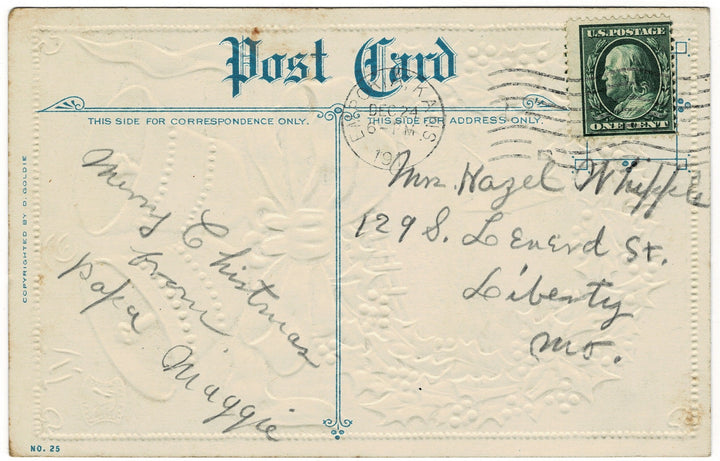 Post Card
U.S. POSTAGE
ONE CENT
EMPORIA, KANS
DEC 24
6-PM
THIS SIDE FOR CORRESPONDENCE ONLY.
THIS SIDE FOR ADDRESS ONLY.
COPYRIGHTED BY D. GOLDIE
Merry Christmas
from
papa Maggie
Hazel Whipple
129 S. Lenerd St.
Liberty
Mo.
NO. 25